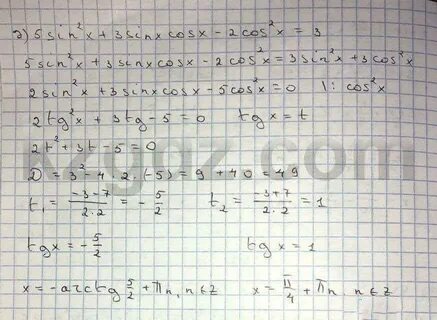 2) 5sin²x + 3sinx cosx - 2cos²x = 3
5sin²x + 3sinx cosx - 2cos²x = 3sin²x + 3cos²x
2sin²x + 3sinx cosx - 5cos²x = 0 |: cos²x
2tg²x + 3tg - 5 = 0 tgx = t
2t² + 3t - 5 = 0
D = 3² - 4 · 2 · (-5) = 9 + 40 = 49
t₁ = (-3-7)/(2·2) = -5/2 t₂ = (-3+7)/(2·2) = 1
tgx = -5/2 tgx = 1
x = -arctg 5/2 + πn, n∈Z x = π/4 + πn, n∈Z
kzgaz.com